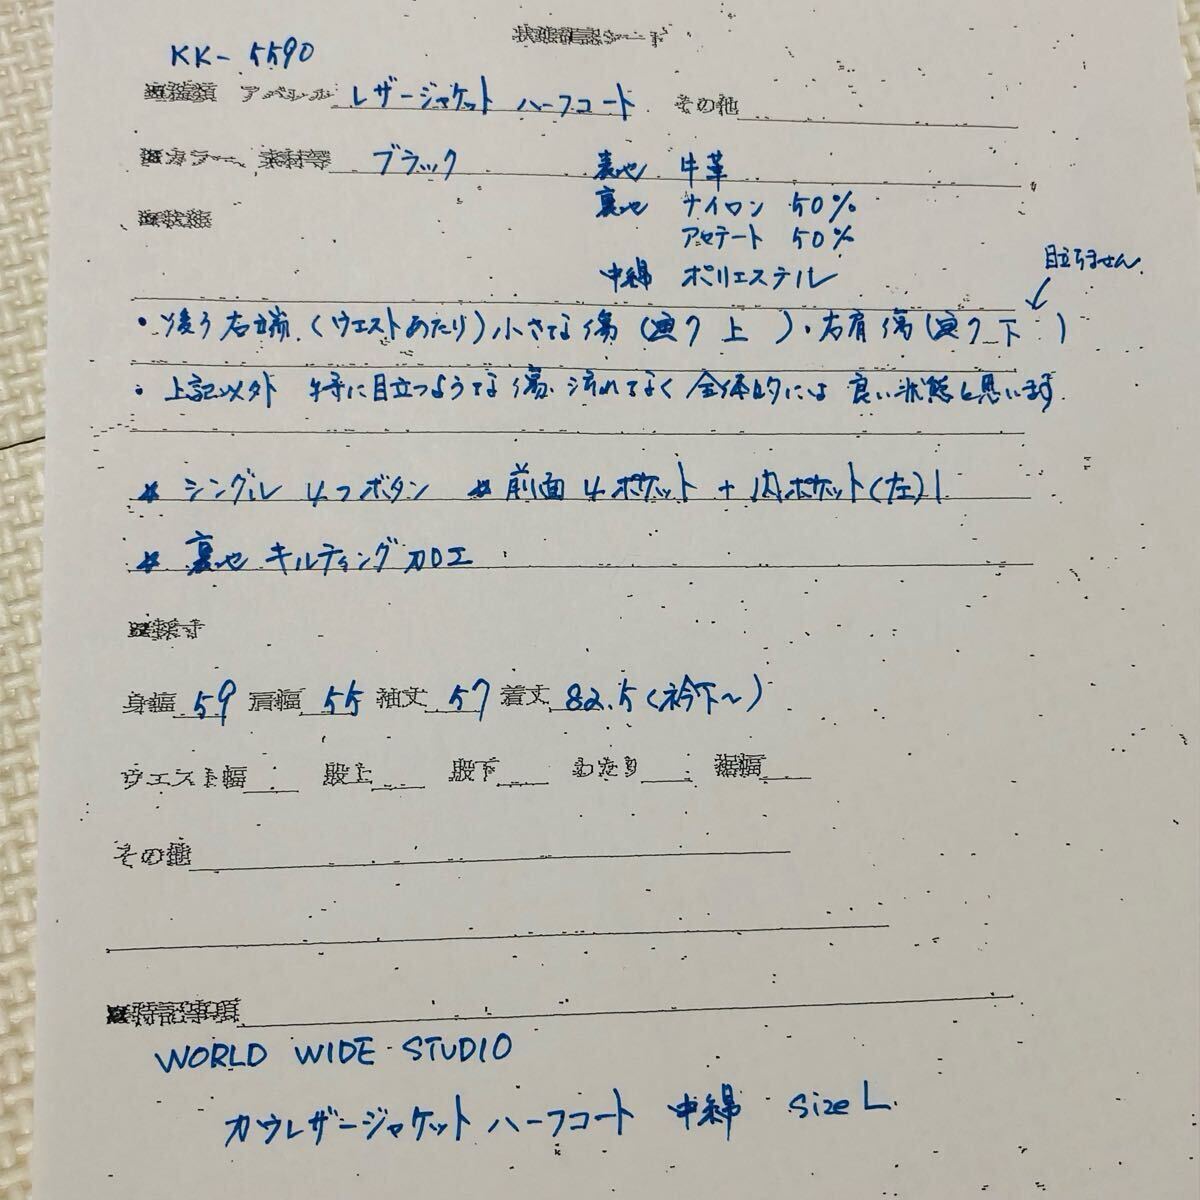 状態確認シート
KK-5590
■種類 アパレル レザージャケット ハーフコート その他
■カラー、素材等 ブラック 表地 牛革
■状態 裏地 ナイロン 50%
アセテート 50%
中綿 ポリエステル
目立ちません
・後ろ右端(ウエストあたり)小さな傷(画7上)・右肩傷(画7下)
・上記以外 特に目立つような傷、汚れてなく 全体的には 良い状態と思います
* シングル 4つボタン * 前面4ポケット + 内ポケット(左)1
* 裏地 キルティング加工
■採寸
身幅 59 肩幅 55 袖丈 57 着丈 82.5(衿下~)
ウエスト幅 股上 股下 わたり 裾幅
その他
■特記事項
WORLD WIDE STUDIO
カウレザージャケット ハーフコート 中綿 size L